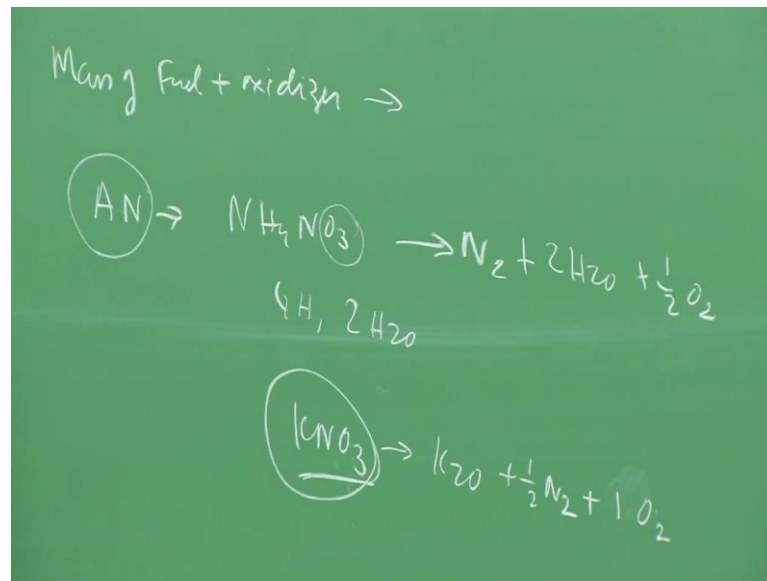 Man g Fuel + oxidizer →
AN → NH4NO3 → N2 + 2H2O + 1/2 O2
4H, 2H2O
KNO3 → K2O + 1/2 N2 + 1 O2